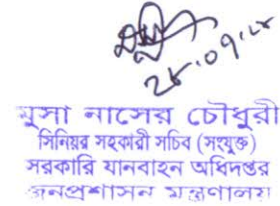 ২৮.০৭.২৫
মুসা নাসের চৌধুরী
সিনিয়র সহকারী সচিব (সংযুক্ত)
সরকারি যানবাহন অধিদপ্তর
জনপ্রশাসন মন্ত্রণালয়